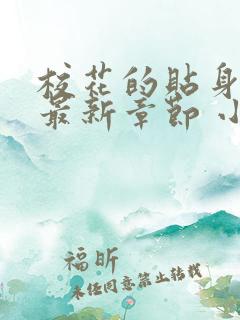 校花的贴身
最新章节 小
福昕
未经同意禁止转载